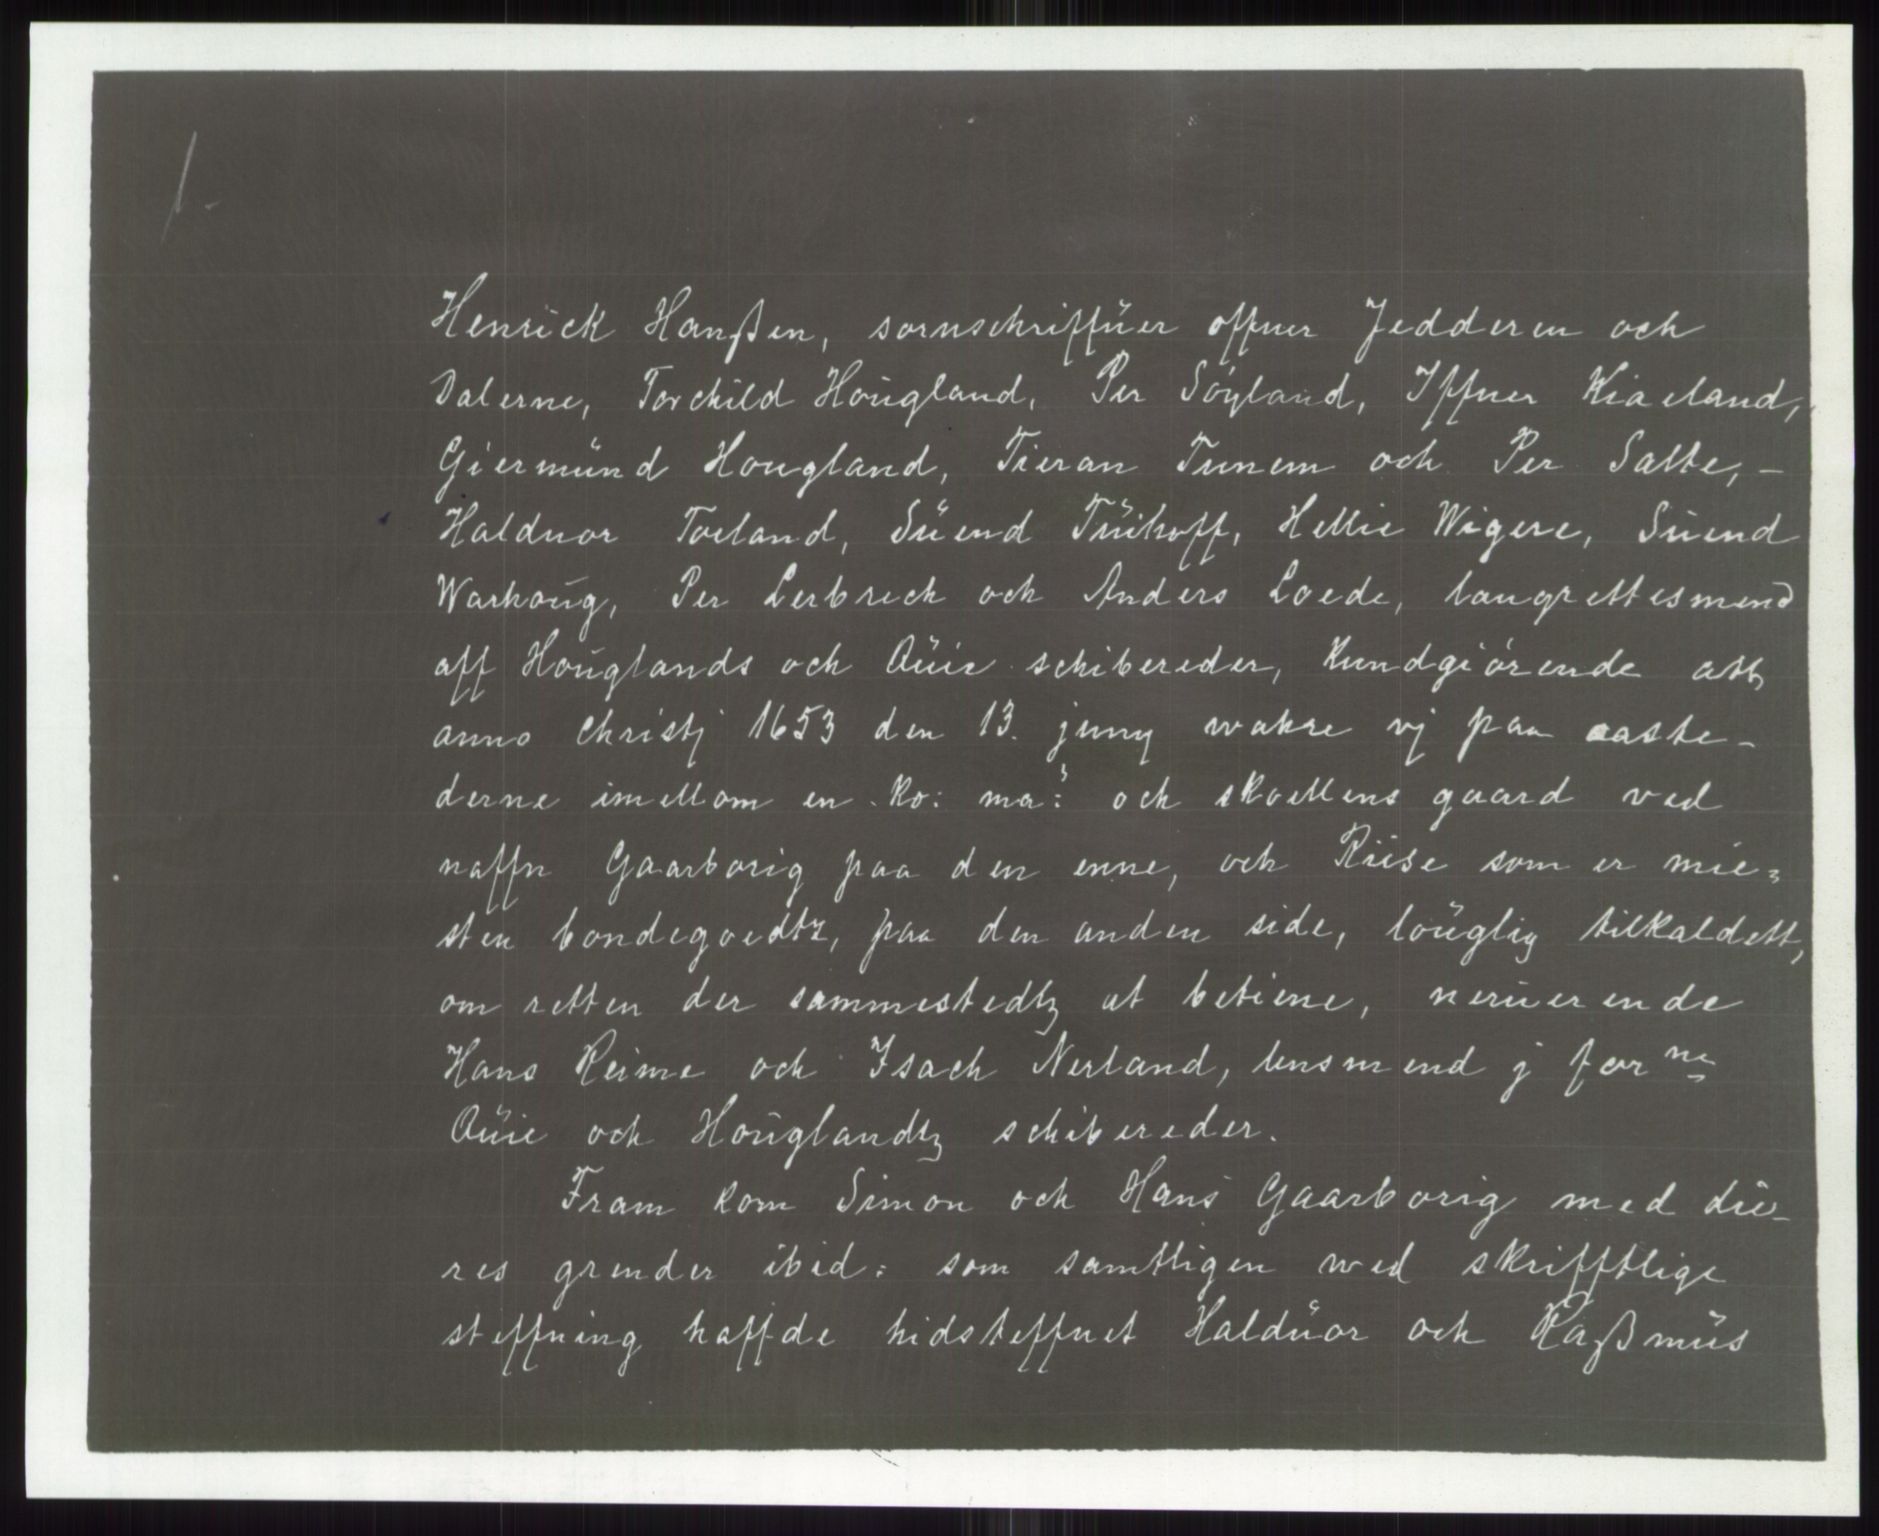 1.
Henrick Hanßen, sornschriffüer offuer Jedderen och
Dalerne, Torchild Hougland, Per Söyland, Iffuer Kiaeland,
Giermünd Hougland, Tieran Tunem och Per Salte, –
Halduor Toeland, Süend Tüihoff, Hellie Wigere, Süend
Warhoüg, Per Lerbreck och Anders Loede, laugrettesmend
aff Houglands och Oüie schibereder, kundgiörende att
anno Christj 1653 den 13. juny wahre vj paa aaste-
derne imellom en ko: ma: och skoellens gaard ved
naffn Gaarborig paa den enne, och Riise som er mie=
sten bondegoedtz, paa den anden side, loüglig tilkaldett,
om retten der sammestedtz at betiene, neruerende
Hans Reime och Isach Nerland, lensmend j forne
Oüie och Houglandtz schibereder.
Fram kom Simon och Hans Gaarborig med die-
res grender ibid: som samtligen med skrifftlige
steffning haffde hidsteffnet Haldüor och Raßmüs